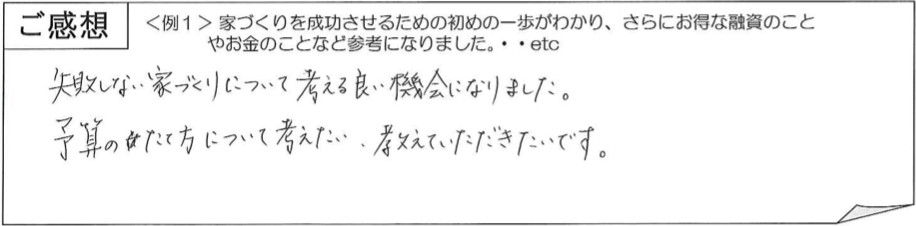 ご感想
＜例１＞家づくりを成功させるための初めの一歩がわかり、さらにお得な融資のこと
やお金のことなど参考になりました。・・etc
失敗しない家づくりについて考える良い機会になりました。
予算のたて方について考えたい、教えていただきたいです。